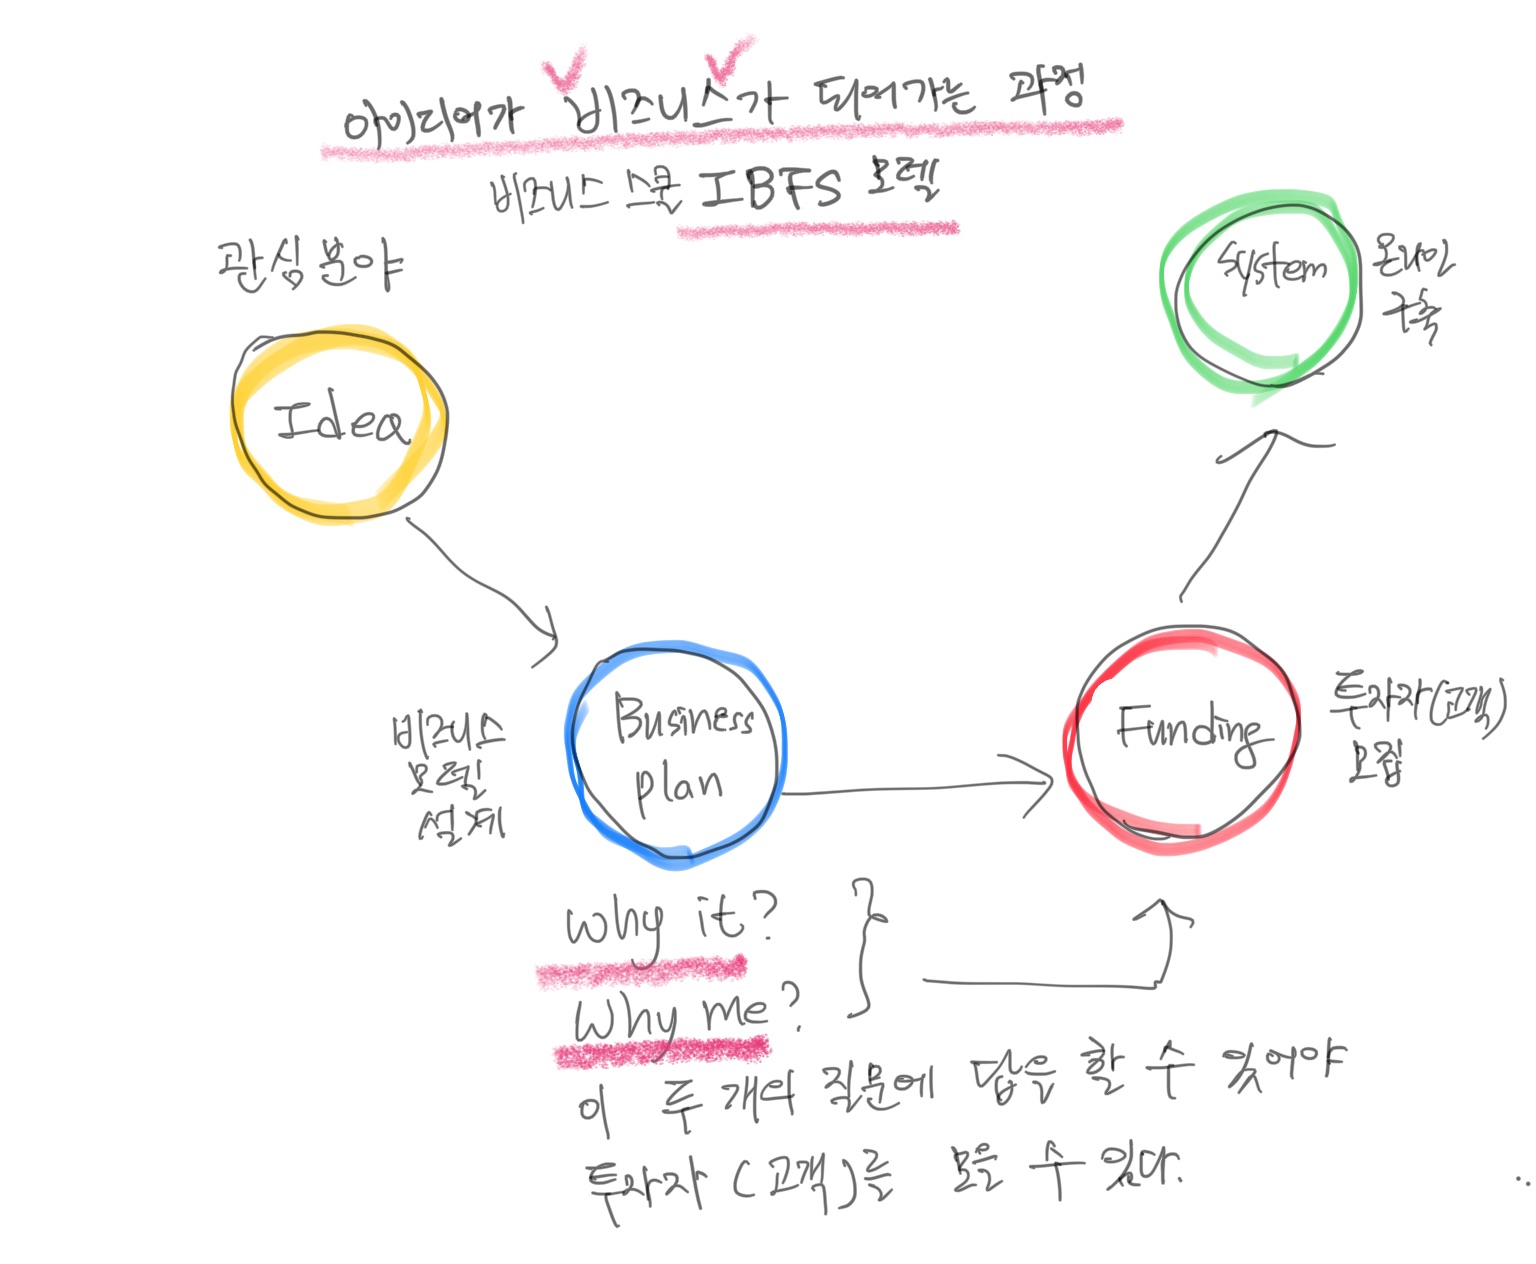 아이디어가 비즈니스가 되어가는 과정
비즈니스 스쿨 IBFS 모델
관심분야
Idea
비즈니스
모델
설계
Business
plan
Funding
투자자(고객)
모집
System
온라인
구축
Why it?
Why me?
이 두 개의 질문에 답을 할 수 있어야
투자자(고객)를 모을 수 있다.